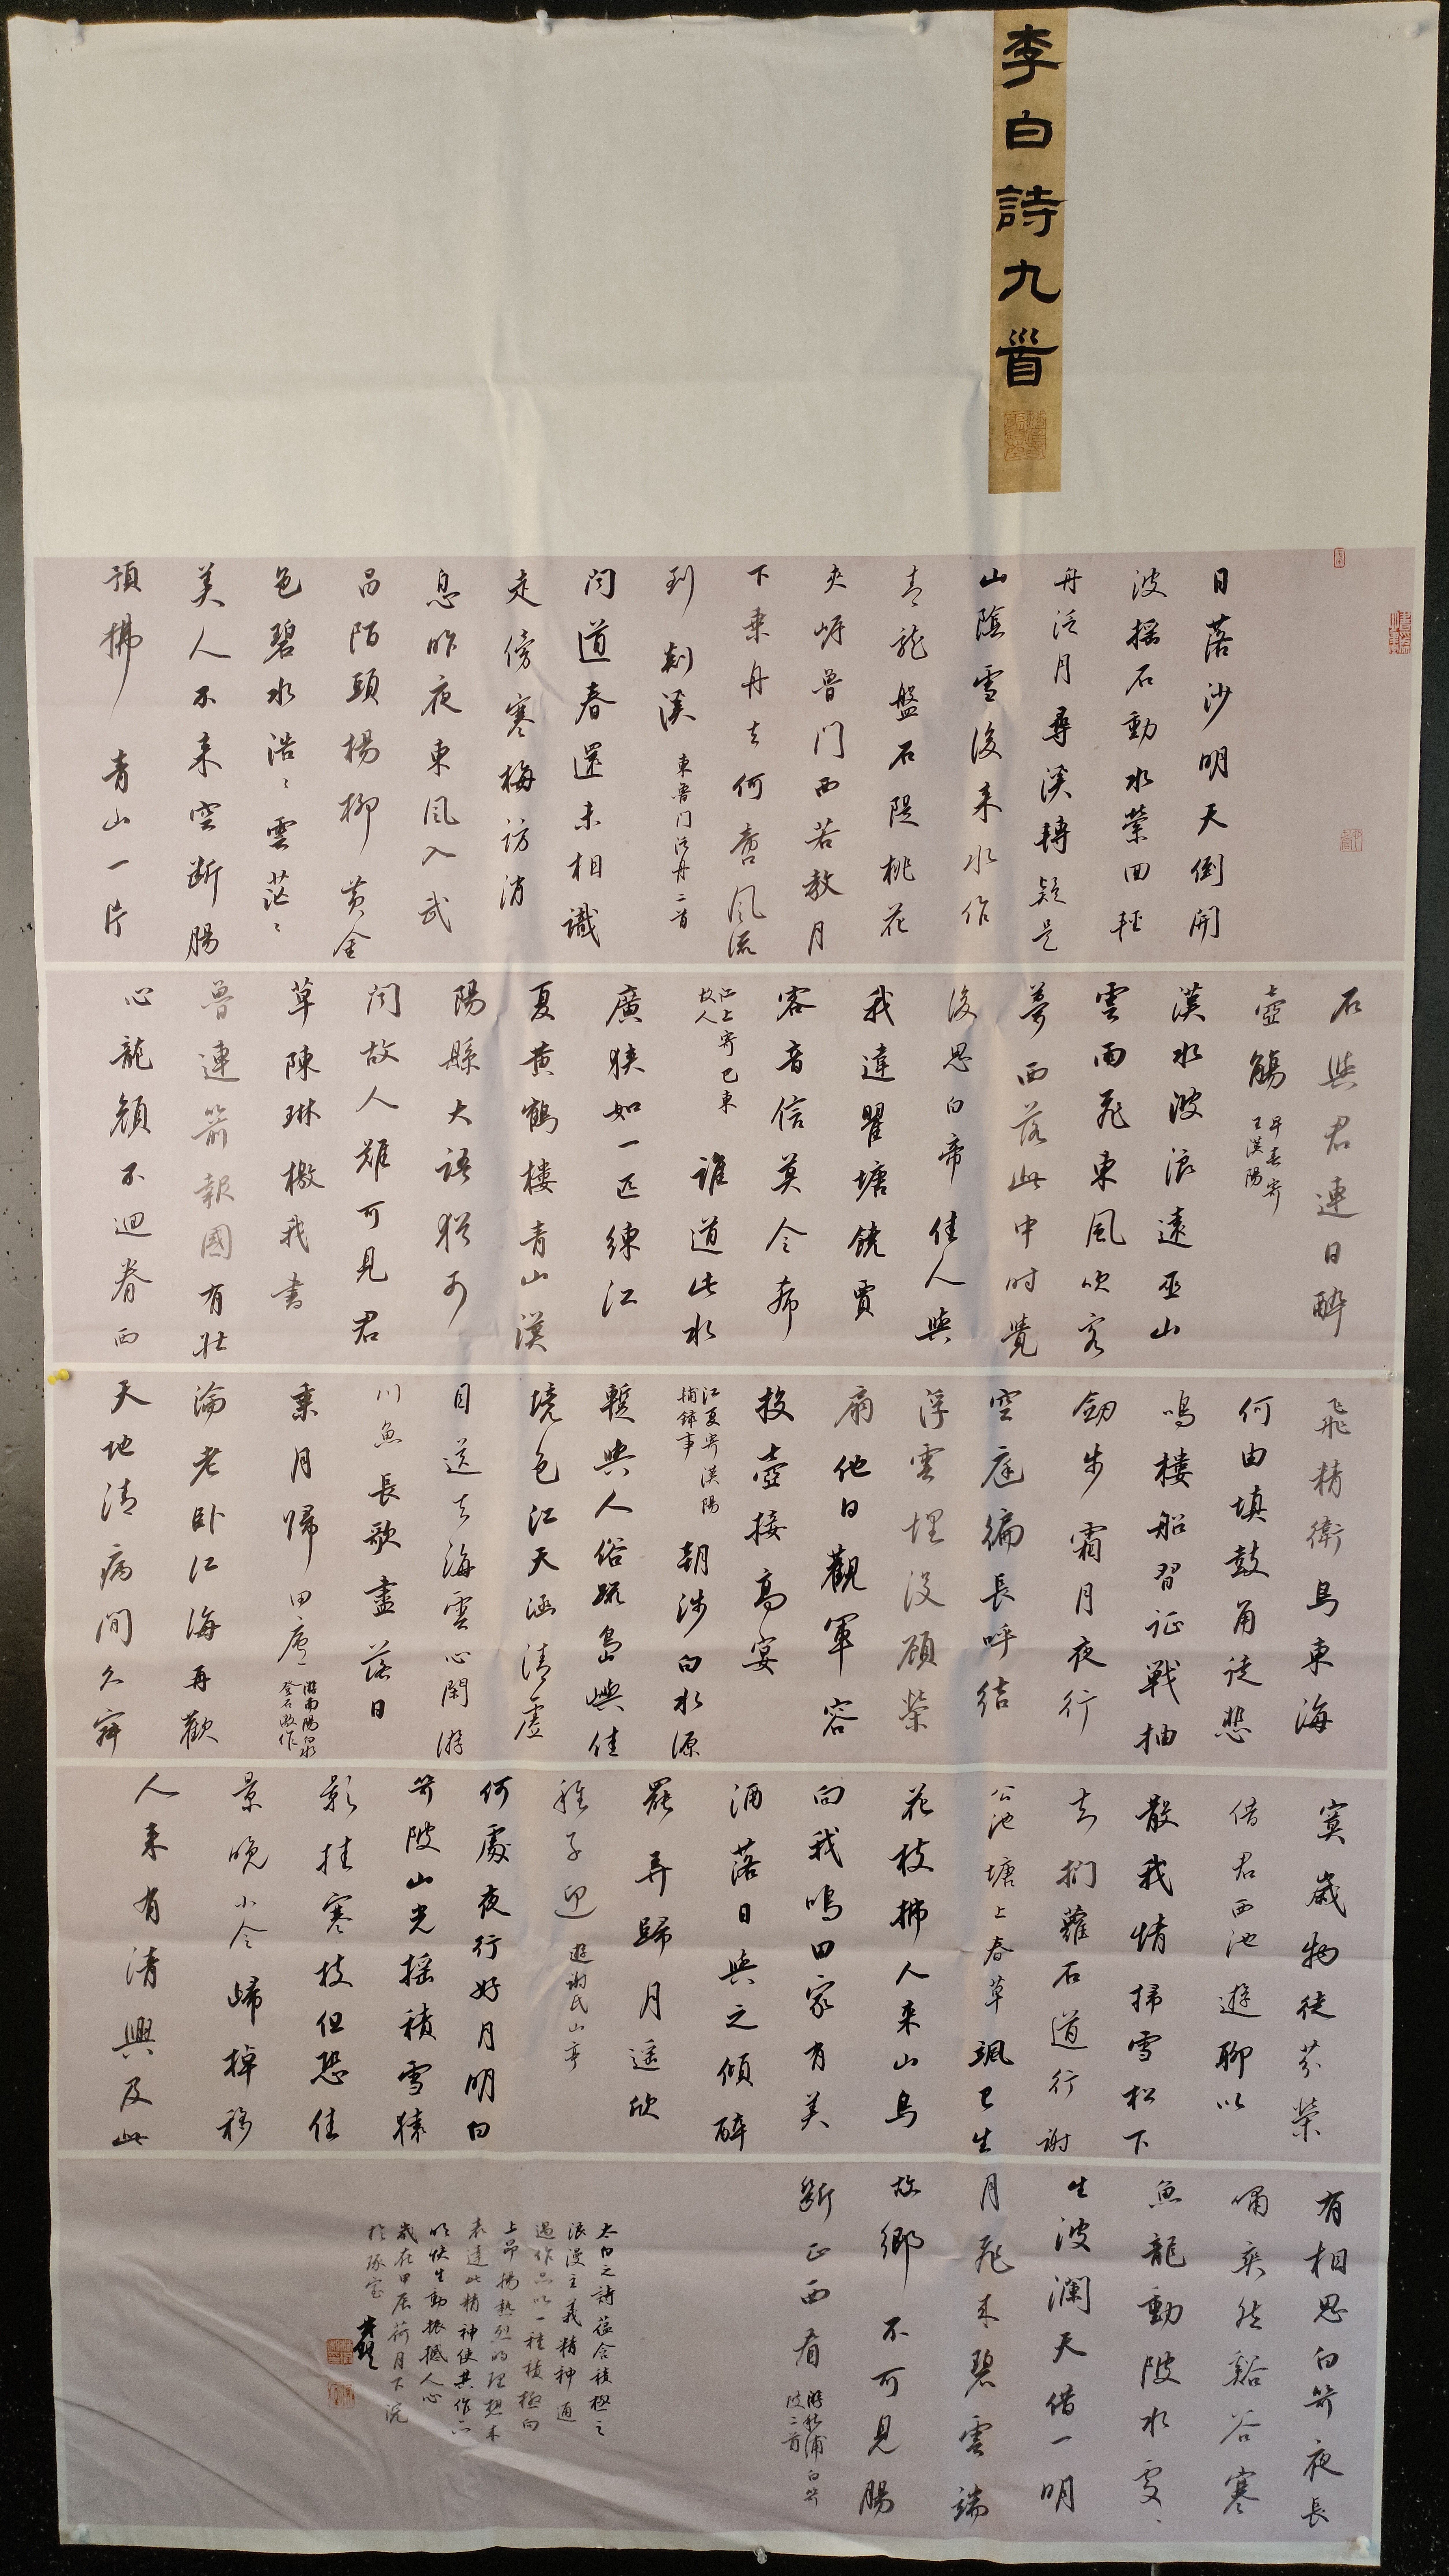 李白詩九首
日落沙明天倒開
波搖石動水縈回輕
舟泛月尋溪轉疑是
山陰雪後來水作
青龍盤石堤桃花
夾岸魯门西若教月
下乘舟去何啻風流
到剡溪
東魯门泛舟二首
聞道春還未相識
走傍寒梅訪消
息昨夜東風入武
昌陌頭楊柳黄金
色碧水浩〻雲茫〻
美人不来空断腸
預拂青山一片
石與君連日醉
壺觴
早春寄
王漢陽
漢水波浪遠巫山
雲雨飛東風吹客
夢西落此中时覺
後思白帝佳人與
我違瞿塘饒賈
客音信莫令希
江上寄巴東
故人
誰道此水
廣狭如一匹練江
夏黄鶴樓青山漢
陽縣大語猶可
聞故人難可見君
草陳琳檄我書
魯連箭報國有壯
心龍顔不迴眷西
飛精衛鳥東海
何由填鼓角徒悲
鳴樓船習征戰抽
劒步霜月夜行
空庭徧長呼結
浮雲埋没顧榮
扇他日觀軍容
投壺接高宴
江夏寄漢陽
輔録事
朝涉白水源
暫與人俗疏島嶼佳
境色江天涵清虛
目送去海雲心閑游
川魚長歌盡落日
乘月歸田廬
游南陽白水
登石激作
淪老卧江海再歡
天地清病閒久寂
寞歲物徒芬榮
借君西池遊聊以
散我情掃雪松下
去捫蘿石道行謝
公池塘上春草颯已生
花枝拂人来山鳥
向我鳴田家有美
酒落日與之傾醉
罷弄歸月遥欣
稚子迎
遊谢氏山亭
何處夜行好月明白
笴陂山光摇積雪猿
影挂寒枝但恐佳
景晚小令歸棹移
人来有清興及此
有相思白笴夜長
嘯爽然谿谷寒
魚龍動陂水處〻
生波瀾天借一明
月飛来碧雲端
故鄉不可見腸
斷正西看
游秋浦白笴
陂二首
太白之詩蕴含積極之
浪漫主義精神通
過作品以一種積極向
上昂揚热烈的理想来
表達此精神使其作品
明快生動振撼人心
歲在甲辰荷月下浣